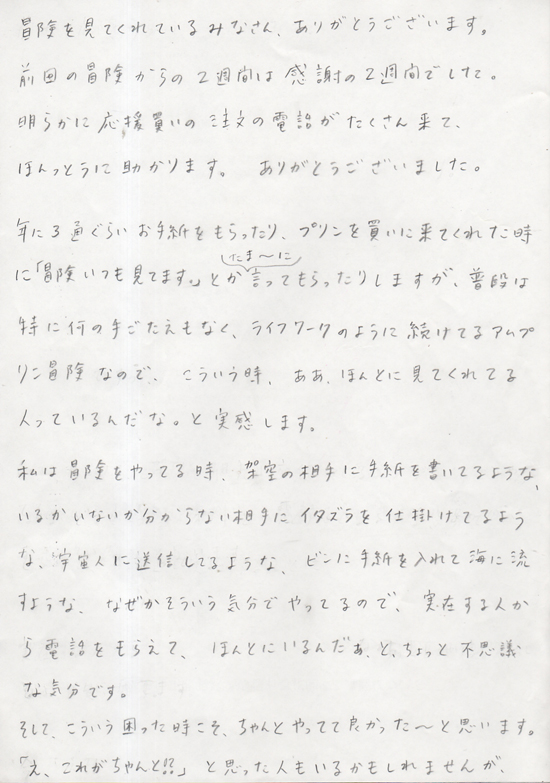 冒険を見てくれているみなさん、ありがとうございます。
前回の冒険からの2週間は感謝の2週間でした。
明らかに応援買いの注文の電話がたくさん来て、
ほんっとうに助かります。 ありがとうございました。
年に3通ぐらいお手紙をもらったり、プリンを買いに来てくれた時
に「冒険いつも見てます。」とか言ってもらったりしますが、普段は
たま〜に
特に何の手ごたえもなく、ライフワークのように続けてるアムプ
リン冒険なので、 こういう時、ああ、ほんとに見てくれてる
人っているんだな。と実感します。
私は冒険をやってる時、架空の相手に手紙を書いてるような、
いるかいないか分からない相手にイタズラを仕掛けてるよう
な、宇宙人に送信してるような、ビンに手紙を入れて海に流
すような、なぜかそういう気分でやってるので、実在する人か
ら電話をもらえて、ほんとにいるんだぁ、と、ちょっと不思議
な気分です。
そして、こういう困った時こそ、ちゃんとやってて良かった〜と思います。
「え、これがちゃんと⁇」と思った人もいるかもしれませんが、